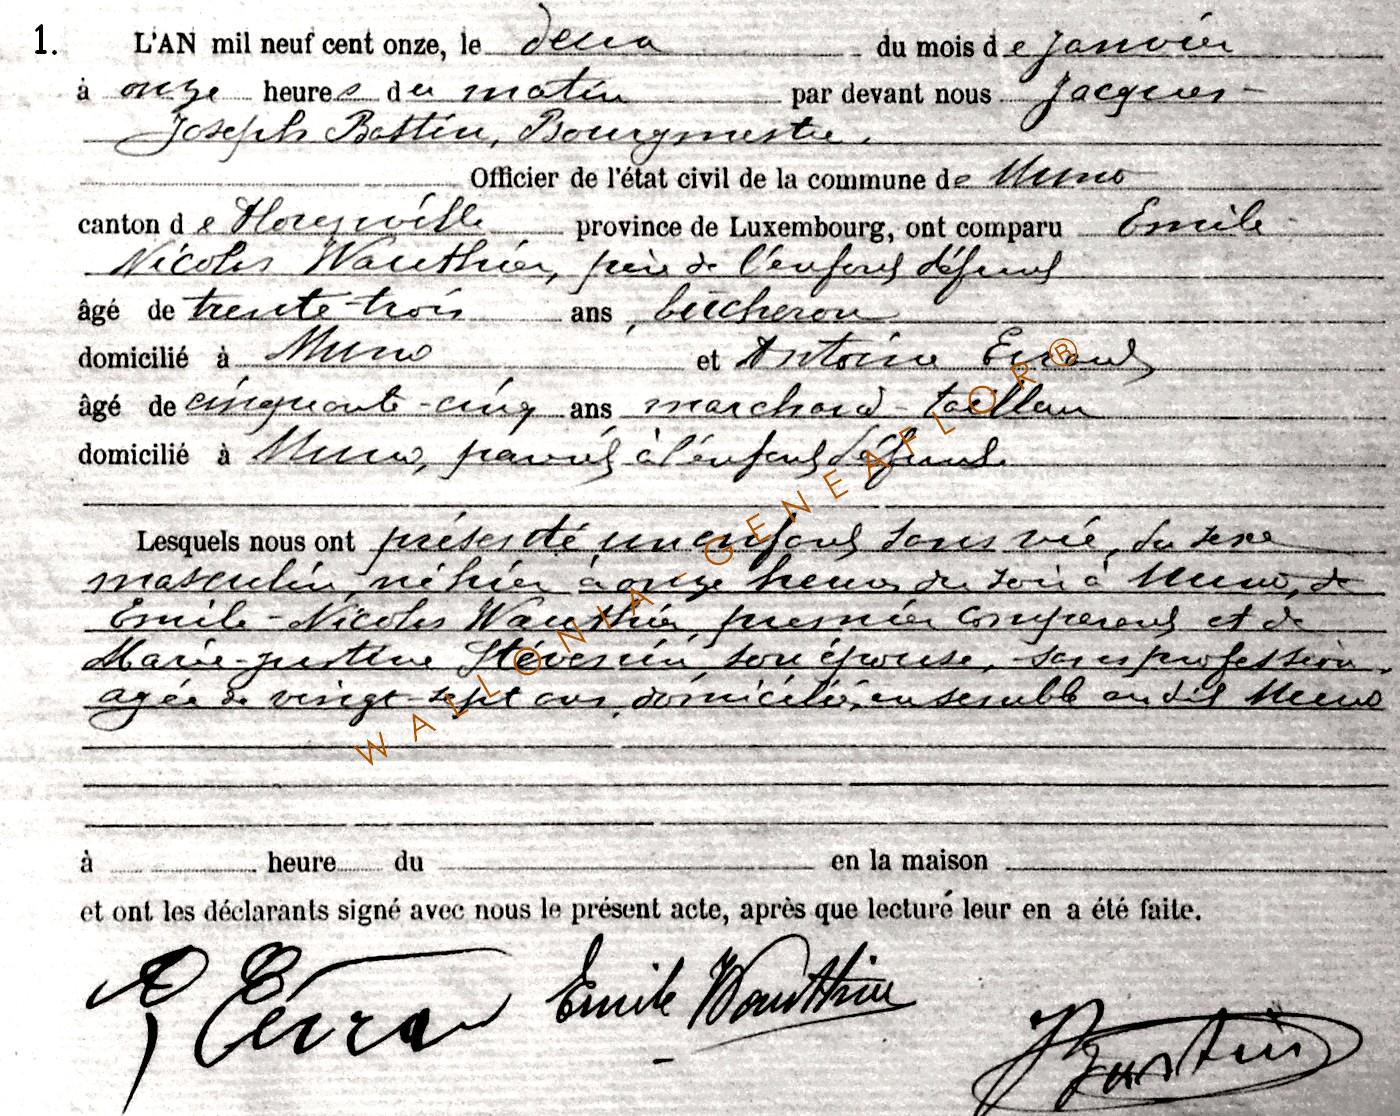 1. L'AN mil neuf cent onze, le deux du mois de janvier
à onze heures du matin par devant nous Jacques-
Joseph Bastin, Bourgmestre,
Officier de l'état civil de la commune de Muno
canton de Florenville province de Luxembourg, ont comparu Emile
Nicolas Wauthier, père de l'enfant défunt
âgé de trente-trois ans, bûcheron
domicilié à Muno et Antoine
âgé de cinquante-cinq ans marchand-tailleur
domicilié à Muno, parent à l'enfant défunt
Lesquels nous ont présenté un enfant sans vie, du sexe
masculin, né hier à onze heures du soir à Muno, de
Emile-Nicolas Wauthier, premier comparant et de
Marie-justine Stévenin, son épouse, sans profession,
agée de vingt-sept ans, domiciliés ensemble au dit Muno
à heure du en la maison
et ont les déclarants signé avec nous le présent acte, après que lecture leur en a été faite.
Emile Wauthier
J Bastin
WALLONIA-GENEAFLOR®